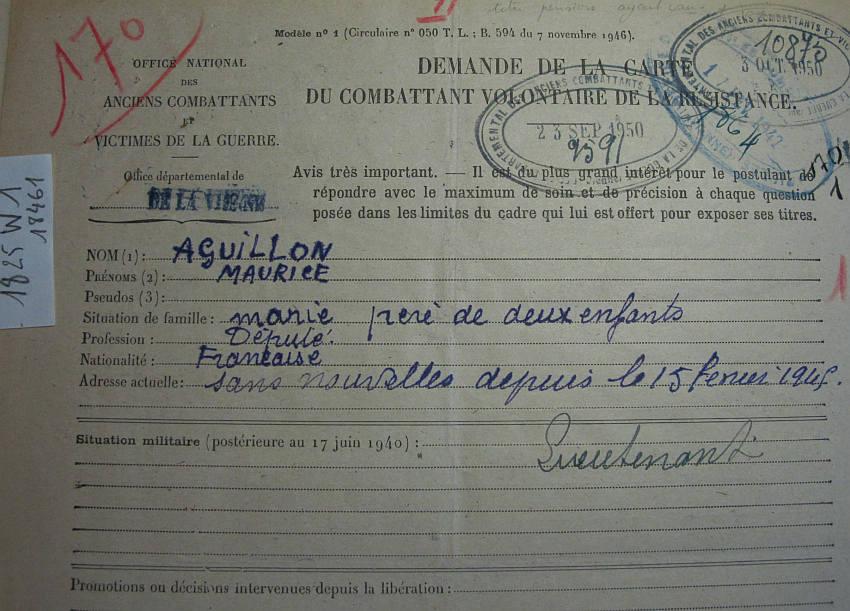 170
Modèle n° 1 (Circulaire n° 050 T. L. ; B. 594 du 7 novembre 1946).
OFFICE NATIONAL
DES
ANCIENS COMBATTANTS
ET
VICTIMES DE LA GUERRE.
Office départemental de
DE LA VIENNE
DEMANDE DE LA CARTE
DU COMBATTANT VOLONTAIRE DE LA RÉSISTANCE.
10875
3 OCT. 1950
23 SEP 1950
9591
Avis très important. — Il est du plus grand intérêt pour le postulant de
répondre avec le maximum de soin et de précision à chaque question
posée dans les limites du cadre qui lui est offert pour exposer ses titres.
1825 W 1
18461
NOM (1) : AGUILLON
PRÉNOMS (2) : MAURICE
Pseudos (3) :
Situation de famille : marié père de deux enfants
Profession : Député.
Nationalité : Française
Adresse actuelle : sans nouvelles depuis le 15 fevrier 1945.
Situation militaire (postérieure au 17 juin 1940) :
Lieutenant
Promotions ou décisions intervenues depuis la libération :